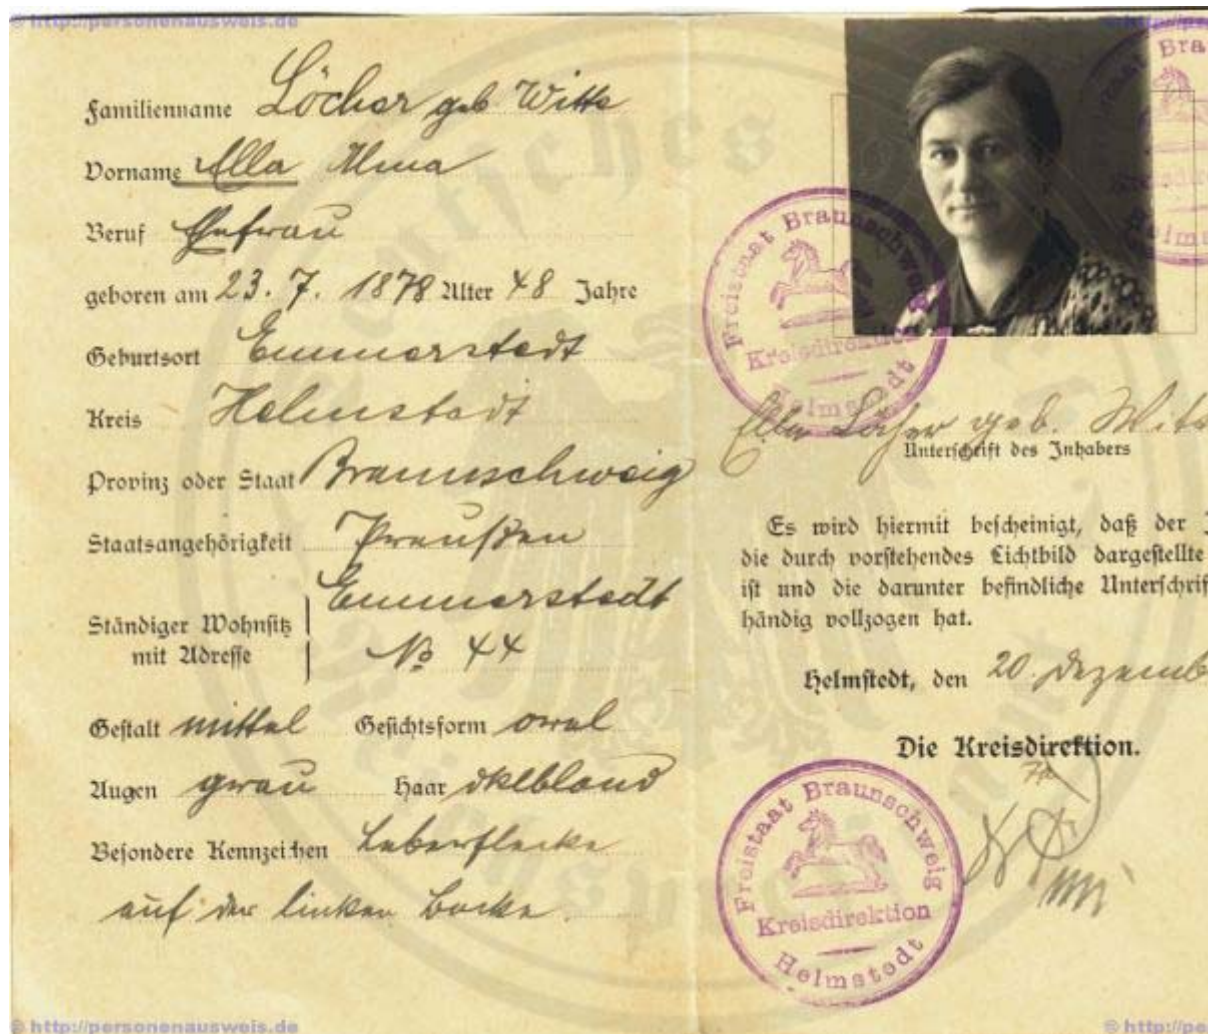 © http://personenausweis.de
Familienname Löcher geb Witte
Vorname Ella Alma
Beruf Ehefrau
geboren am 23. 7. 1878 Alter 48 Jahre
Geburtsort Emmerstedt
Kreis Helmstedt
Provinz oder Staat Braunschweig
Staatsangehörigkeit Preußen
Emmerstedt
Ständiger Wohnsitz
mit Adresse No 44
Gestalt mittel Gesichtsform oval
Augen grau Haar dklblond
Besondere Kennzeichen Leberflecke
auf der linken Backe.
© http://personenausweis.de
Freistaat Braunschweig
Kreisdirektion
Helmstedt
Ella Löcher geb. Wit
Unterschrift des Inhabers
Es wird hiermit bescheinigt, daß der
die durch vorstehendes Lichtbild dargestellte
ist und die darunter befindliche Unterschrif
händig vollzogen hat.
Helmstedt, den 20. Dezemb
Die Kreisdirektion.
Freistaat Braunschweig
Kreisdirektion
Helmstedt